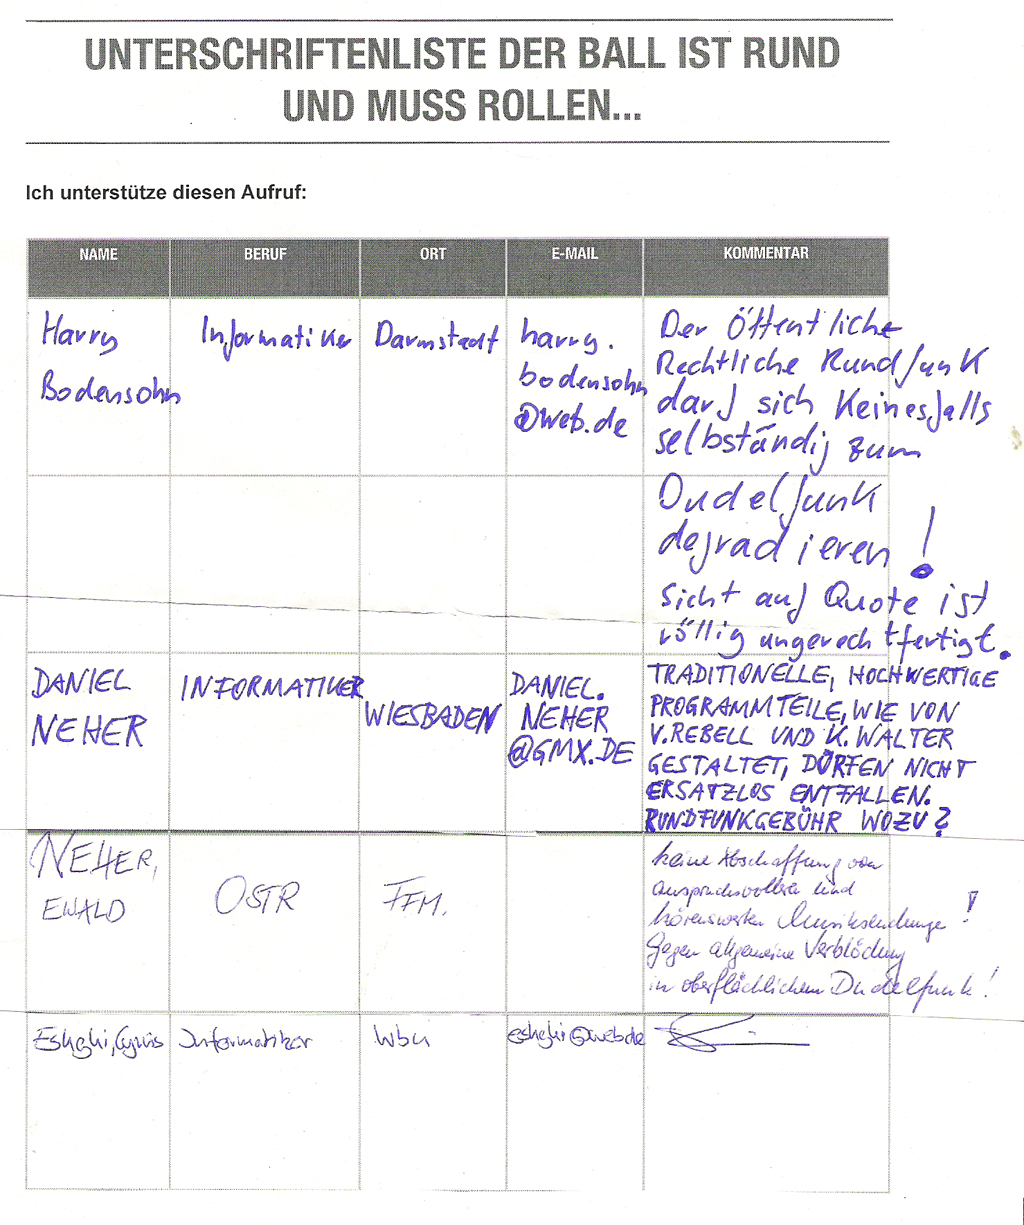 UNTERSCHRIFTENLISTE DER BALL IST RUND
UND MUSS ROLLEN...
Ich unterstütze diesen Aufruf:
NAME BERUF ORT E-MAIL KOMMENTAR
Harry Bodensohn
Informatiker
Darmstadt
harry.
bodensohn
@web.de
Der Öffentliche
Rechtliche Rundfunk
darf sich Keinesfalls
selbständig zum
Dudelfunk
degradieren!
Sicht auf Quote ist
völlig ungerechtfertigt.
DANIEL
NEHER
INFORMATIKER
WIESBADEN
DANIEL.
NEHER
@GMX.DE
TRADITIONELLE, HOCHWERTIGE
PROGRAMMTEILE, WIE VON
V. REBELL UND K. WALTER
GESTALTET, DÜRFEN NICHT
ERSATZLOS ENTFALLEN.
RUNDFUNKGEBÜHR WOZU?
NEHER,
EWALD
OSTR
FFM.
keine Abschaffung von
anspruchsvollen und
hörenswerten Musiksendungen!
Gegen allgemeine Verblödung
in oberflächlichem Dudelfunk!
Eshghi, Cyrus
Informatiker
Wbn
eshghi@web.de